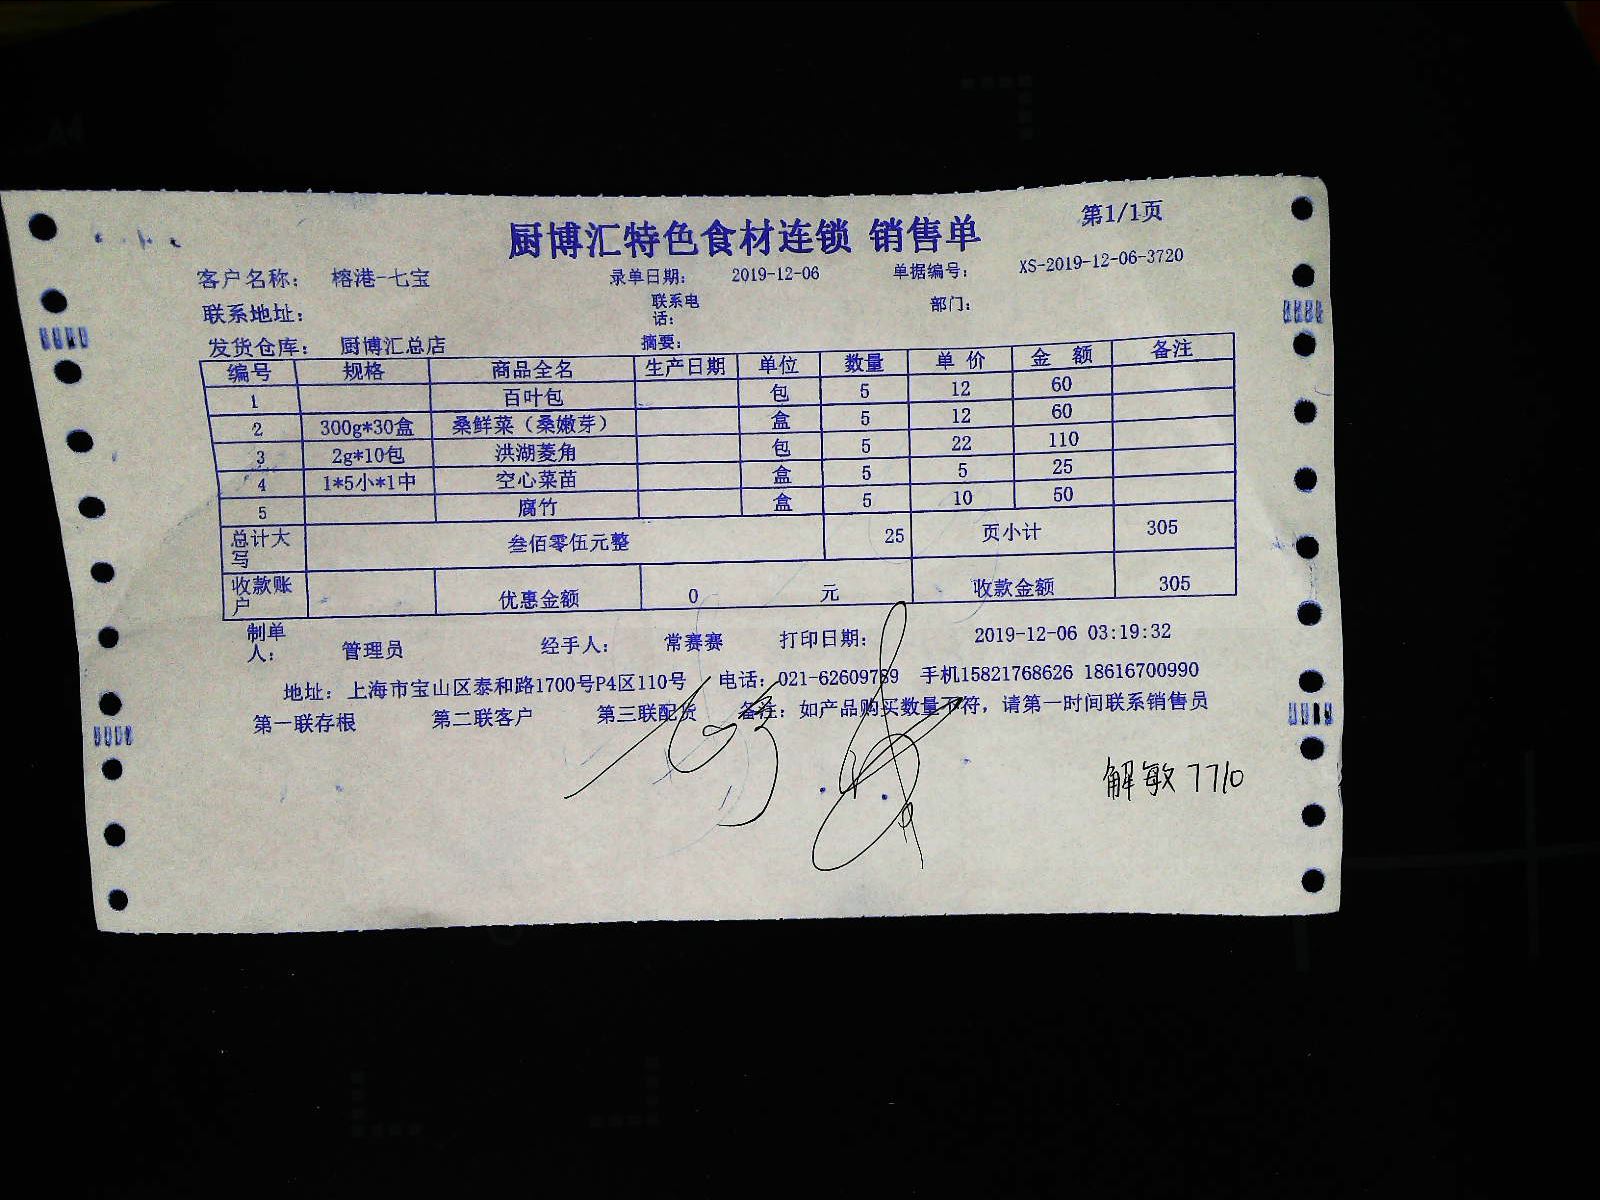 第1/1页
厨博汇特色食材连锁 销售单
客户名称： 榕港-七宝 录单日期： 2019-12-06 单据编号： XS-2019-12-06-3720
联系地址： 联系电话： 部门：
发货仓库： 厨博汇总店 摘要：
编号 规格 商品全名 生产日期 单位 数量 单 价 金 额 备注
1 百叶包 包 5 12 60
2 300g*30盒 桑鲜菜（桑嫩芽） 盒 5 12 60
3 2g*10包 洪湖菱角 包 5 22 110
4 1*5小*1中 空心菜苗 盒 5 5 25
5 腐竹 盒 5 10 50
总计大写 叁佰零伍元整 25 页小计 305
收款账户 优惠金额 0 元 收款金额 305
制单人： 管理员 经手人： 常赛赛 打印日期： 2019-12-06 03:19:32
地址：上海市宝山区泰和路1700号P4区110号 电话：021-62609789 手机15821768626 18616700990
第一联存根 第二联客户 第三联配货 备注：如产品购买数量不符，请第一时间联系销售员
解敏 7710